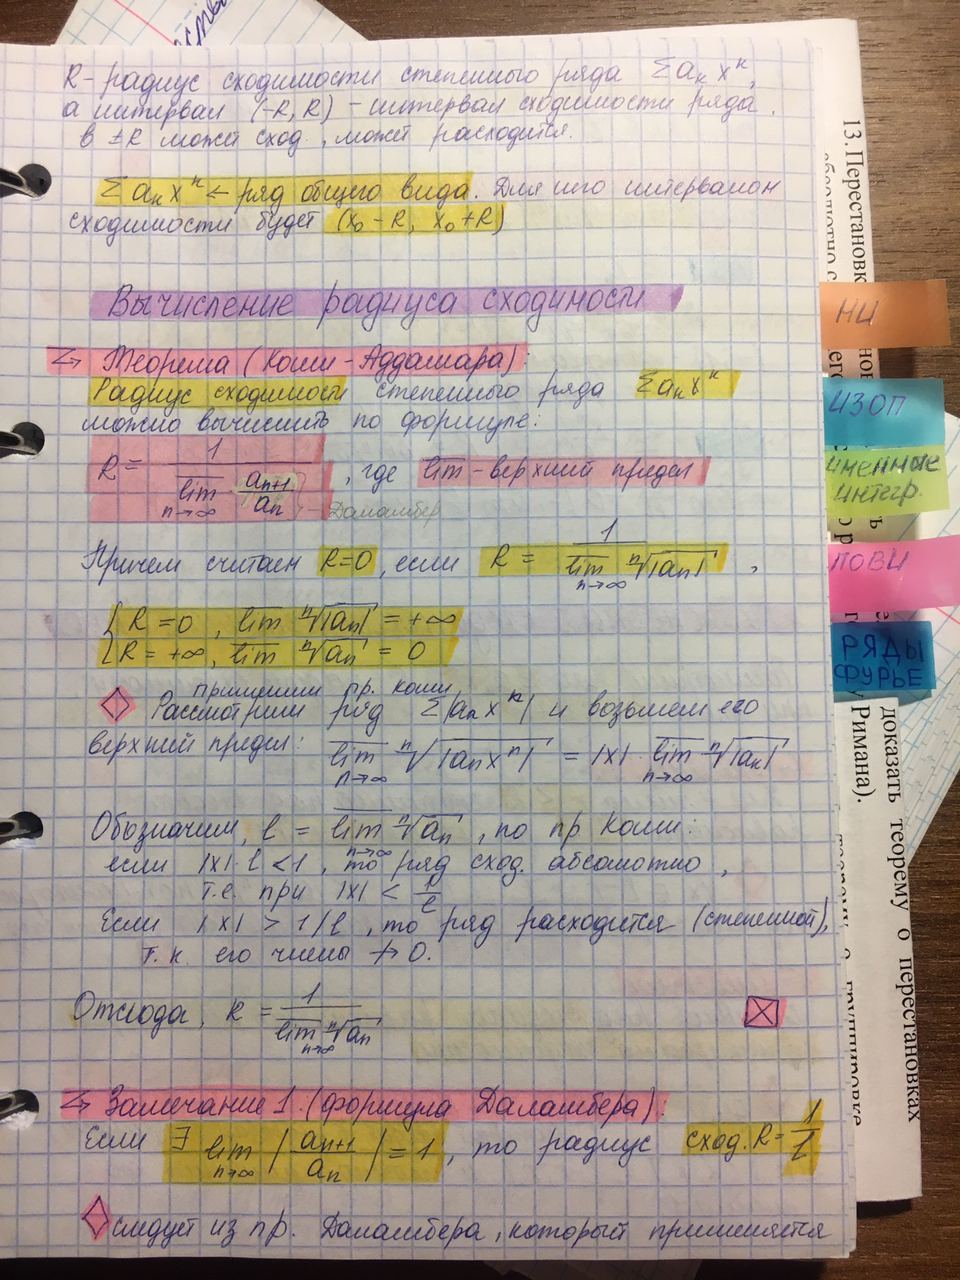 R - радиус сходимости степенного ряда Σaₙxⁿ,
а интервал (-R, R) - интервал сходимости ряда.
в ±R может сход., может расходится.
Σaₙxⁿ ← ряд общего вида. Для него интервалом
сходимости будет (x₀-R, x₀+R)
Вычисление радиуса сходимости
Теорема (Коши-Аддамара):
Радиус сходимости степенного ряда Σaₙxⁿ
можно вычислить по формуле:
R = 1 / (lim̅ n→∞ aₙ₊₁/aₙ), где lim̅ - верхний предел
- Даламбер
Причем считаем R=0, если R = 1 / (lim̅ n→∞ ⁿ√|aₙ|),
{ R=0, lim̅ ⁿ√|aₙ| = +∞
{ R=+∞, lim̅ ⁿ√|aₙ| = 0
применим пр. Коши
Рассмотрим ряд Σ|aₙxⁿ| и возьмем его
верхний предел: lim̅ n→∞ ⁿ√|aₙxⁿ| = |x| · lim̅ n→∞ ⁿ√|aₙ|
Обозначим, l = lim̅ n→∞ ⁿ√aₙ, по пр. Коши:
если |x|·l<1, то ряд сход. абсолютно,
т.е. при |x| < 1/l
Если |x| > 1/l, то ряд расходится (степенной),
т.к. его члены ↛ 0.
Отсюда, R = 1 / (lim̅ n→∞ ⁿ√aₙ)
Замечание 1. (формула Даламбера).
Если ∃ lim n→∞ |aₙ₊₁/aₙ| = l, то радиус сход. R = 1/l
следует из пр. Даламбера, который применяется
НИ
ИЗОП
именные
интегр.
ПОВИ
РЯДЫ
ФУРЬЕ
13. Перестановк
доказать теорему о перестановках
Римана).
группировке